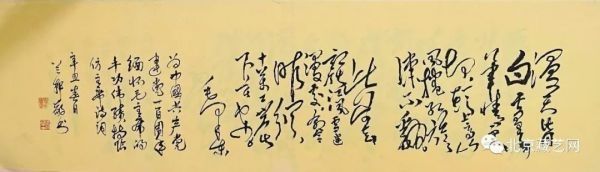 漫天皆
白雪里行
军情更迫
头上高山
风卷红旗
过大关
此行何去
赣江风雪迷
漫处命令
昨颁
十万工农
下吉安
毛泽东
为中国共产党
建党一百周年
缅怀毛主席的
丰功伟绩特临
仿主席诗词
辛丑春日
北京藏艺网